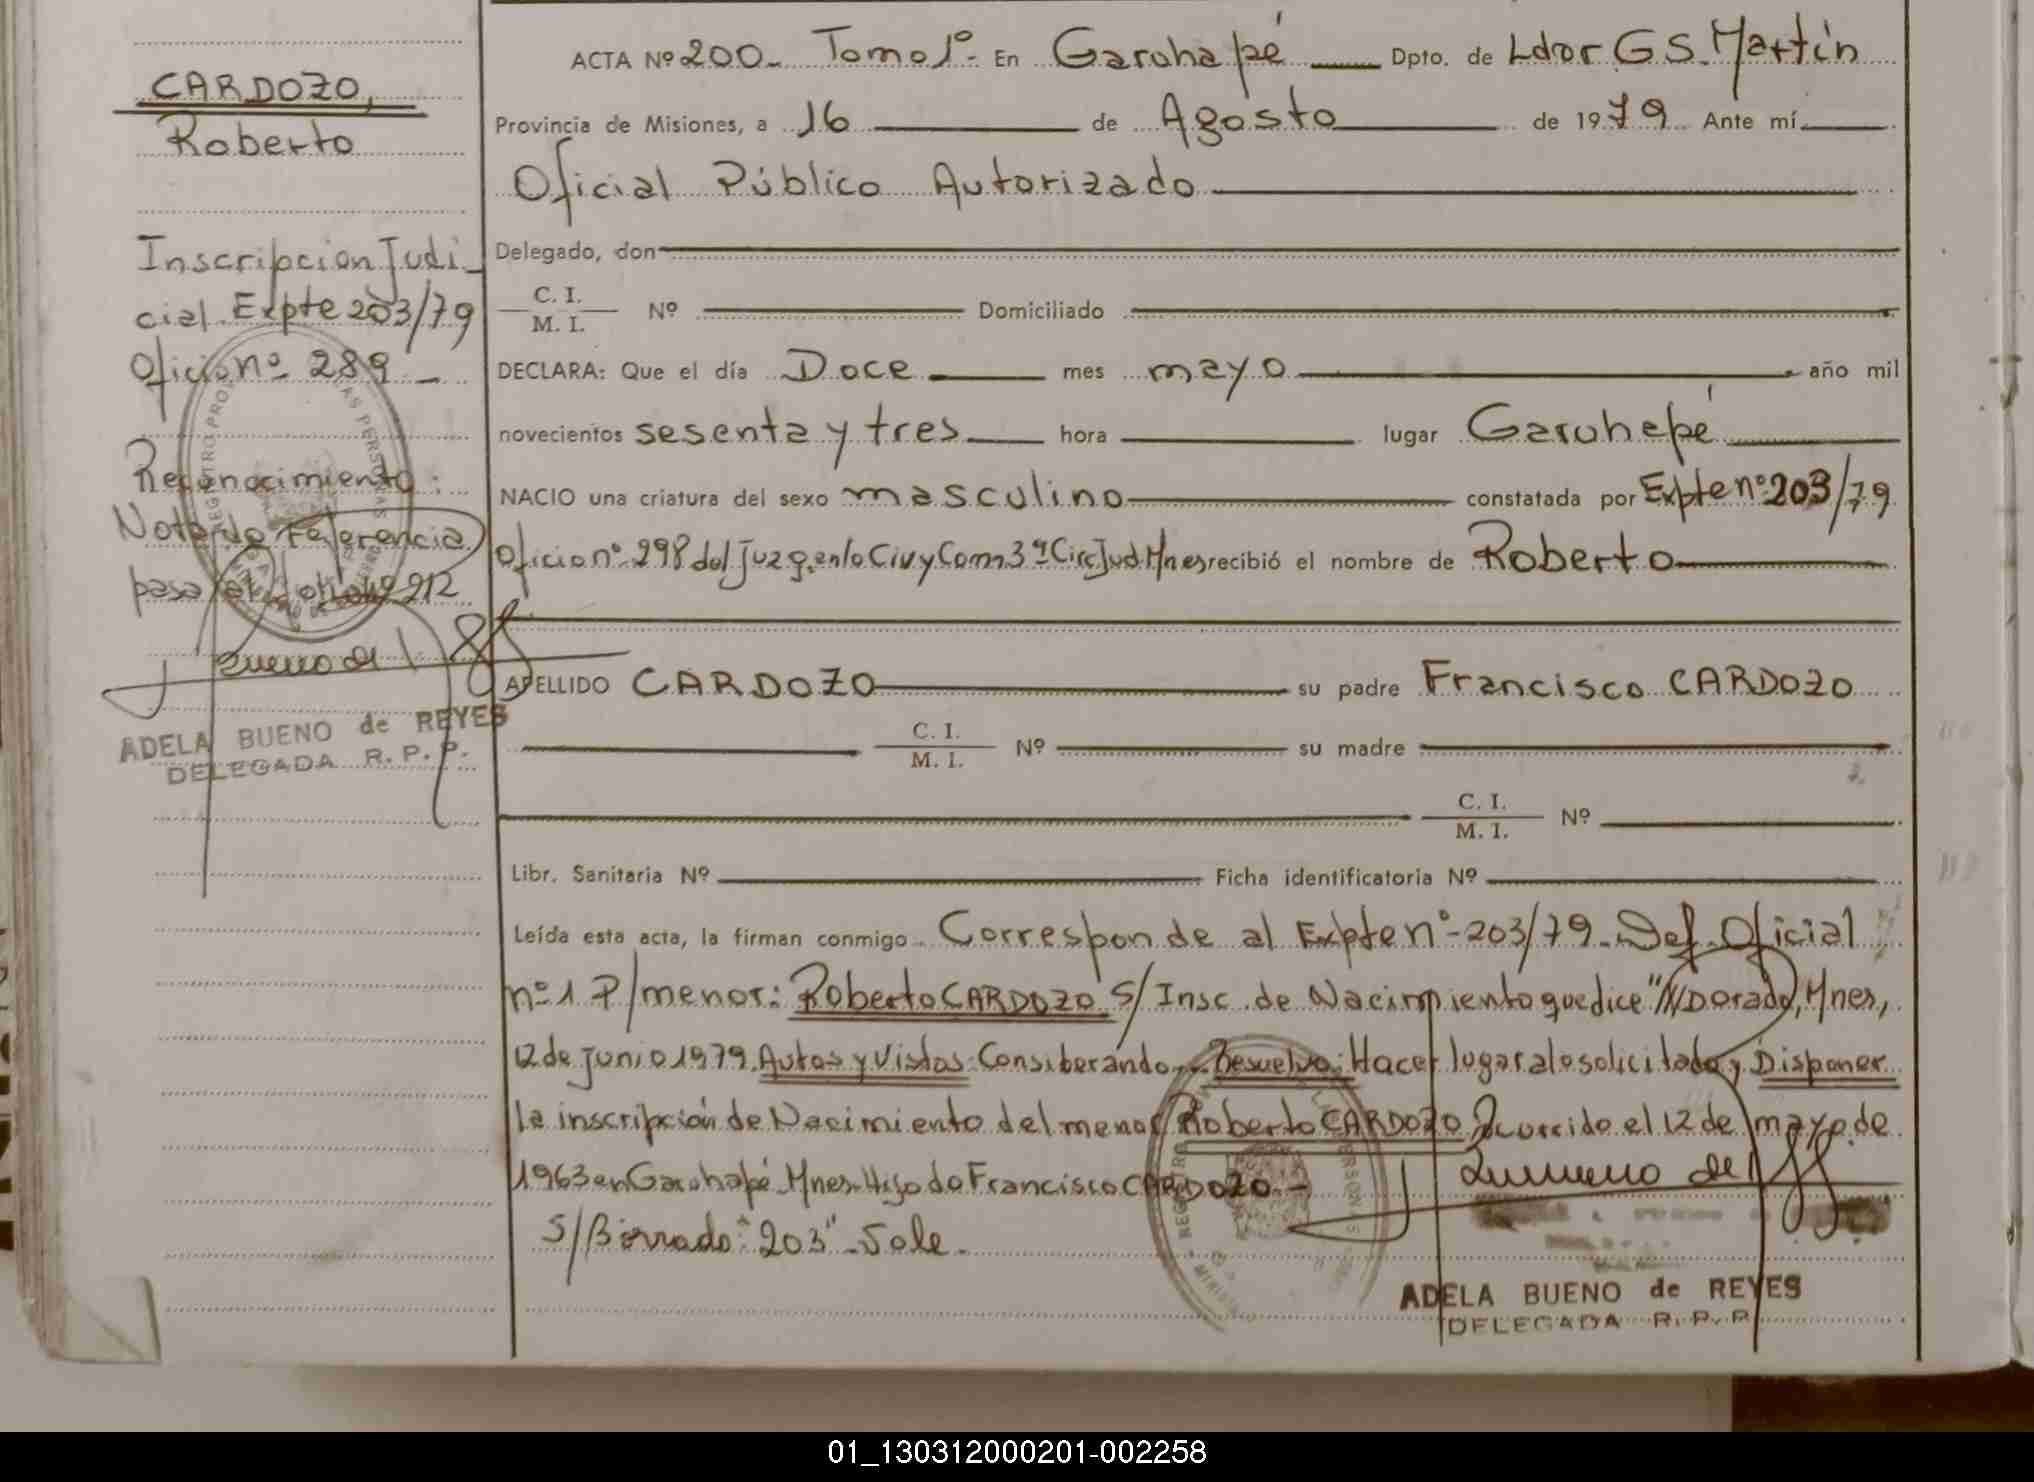 CARDOZO,
Roberto
Inscripcion Judi_
cial Expte 203/79
Oficio nº 289_
Reconocimiento:
Nota de referencia
pasa al folio 212
ADELA BUENO de REYES
DELEGADA R. P. P.
ACTA Nº 200_ Tomo 1º- En Garuhapé Dpto. de Ldor G S. Martín
Provincia de Misiones, a 16 de Agosto de 1979 Ante mí
Oficial Público Autorizado
Delegado, don
C. I.
M. I. Nº Domiciliado
DECLARA: Que el día Doce mes mayo año mil
novecientos sesenta y tres hora lugar Garuhapé
NACIO una criatura del sexo masculino constatada por Expte nº 203/79
Oficio nº 298 del Juzg. en lo Civ y Com 3ª Circ Jud. Mnes recibió el nombre de Roberto
APELLIDO CARDOZO su padre Francisco CARDOZO
C. I.
M. I. Nº su madre
C. I.
M. I. Nº
Libr. Sanitaria Nº Ficha identificatoria Nº
Leída esta acta, la firman conmigo Corresponde al Expte nº 203/79_ Def. Oficial
nº 1 P/menor: Roberto CARDOZO S/Insc. de Nacimiento que dice "//Dorado, Mnes,
12 de junio 1979. Autos y Vistos: Considerando, Resuelvo: Hacer lugar a lo solicitado y Disponer
la inscripción de Nacimiento del menor Roberto CARDOZO Ocurrido el 12 de mayo de
1963 en Garuhapé Mnes. Hijo de Francisco CARDOZO._
S/Borrado: "203" _Vale_
ADELA BUENO de REYES
DELEGADA R. P. P.
01_130312000201-002258